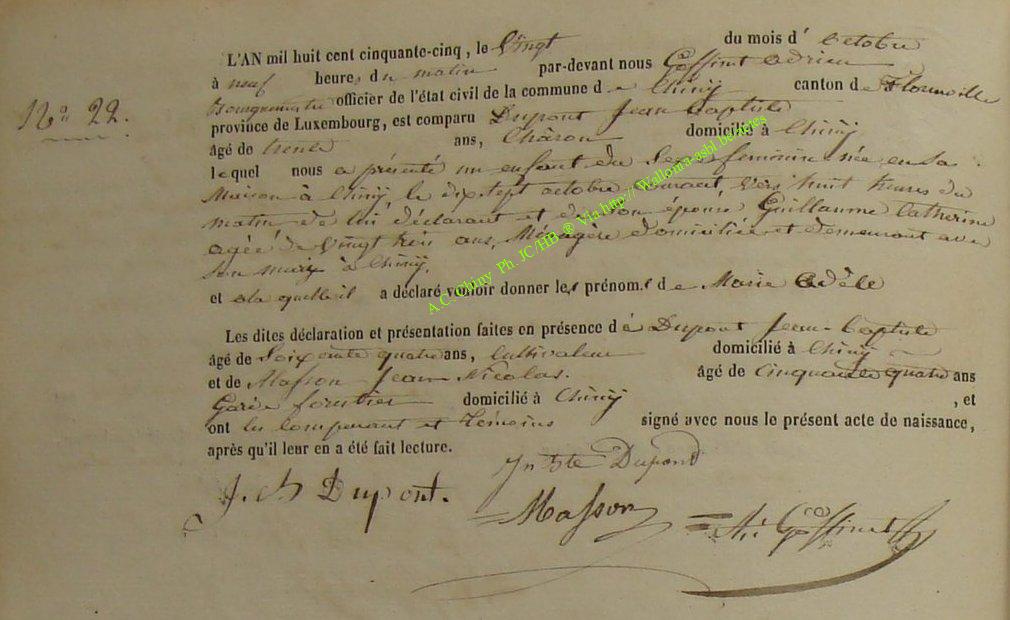 L'AN mil huit cent cinquante-cinq, le Vingt du mois d' octobre
à neuf heures du matin par-devant nous Goffinet Adrien
N° 22.
Bourgmestre officier de l'état civil de la commune de Chiny canton de Florenville
province de Luxembourg, est comparu Dupont Jean Baptiste
âgé de trente ans, Charon domicilié à Chiny
lequel nous a présenté un enfant du Sexe feminin née en sa
Maison à Chiny, le dix Sept octobre courant, vers huit heures du
matin de lui déclarant et de son épouse Guillaume Catherine
agée de Vingt trois ans, Ménagère domiciliée et demeurant avec
son mari à Chiny,
et a la quelle il a déclaré vouloir donner les prénoms de Marie Adèle
Les dites déclaration et présentation faites en présence de Dupont Jean-Baptiste
âgé de Soixante quatre ans, Cultivateur domicilié à Chiny
et de Masson Jean Nicolas. âgé de cinquante quatre ans
Garde forestier domicilié à Chiny , et
ont les Comparant et Témoins signé avec nous le présent acte de naissance,
après qu'il leur en a été fait lecture.
Jn Bte Dupond
J. B Dupont.
Masson
Ad Goffinet
A.C. Chiny Ph. JC/HB ® Via http://Wallonia-asbl.be/actes